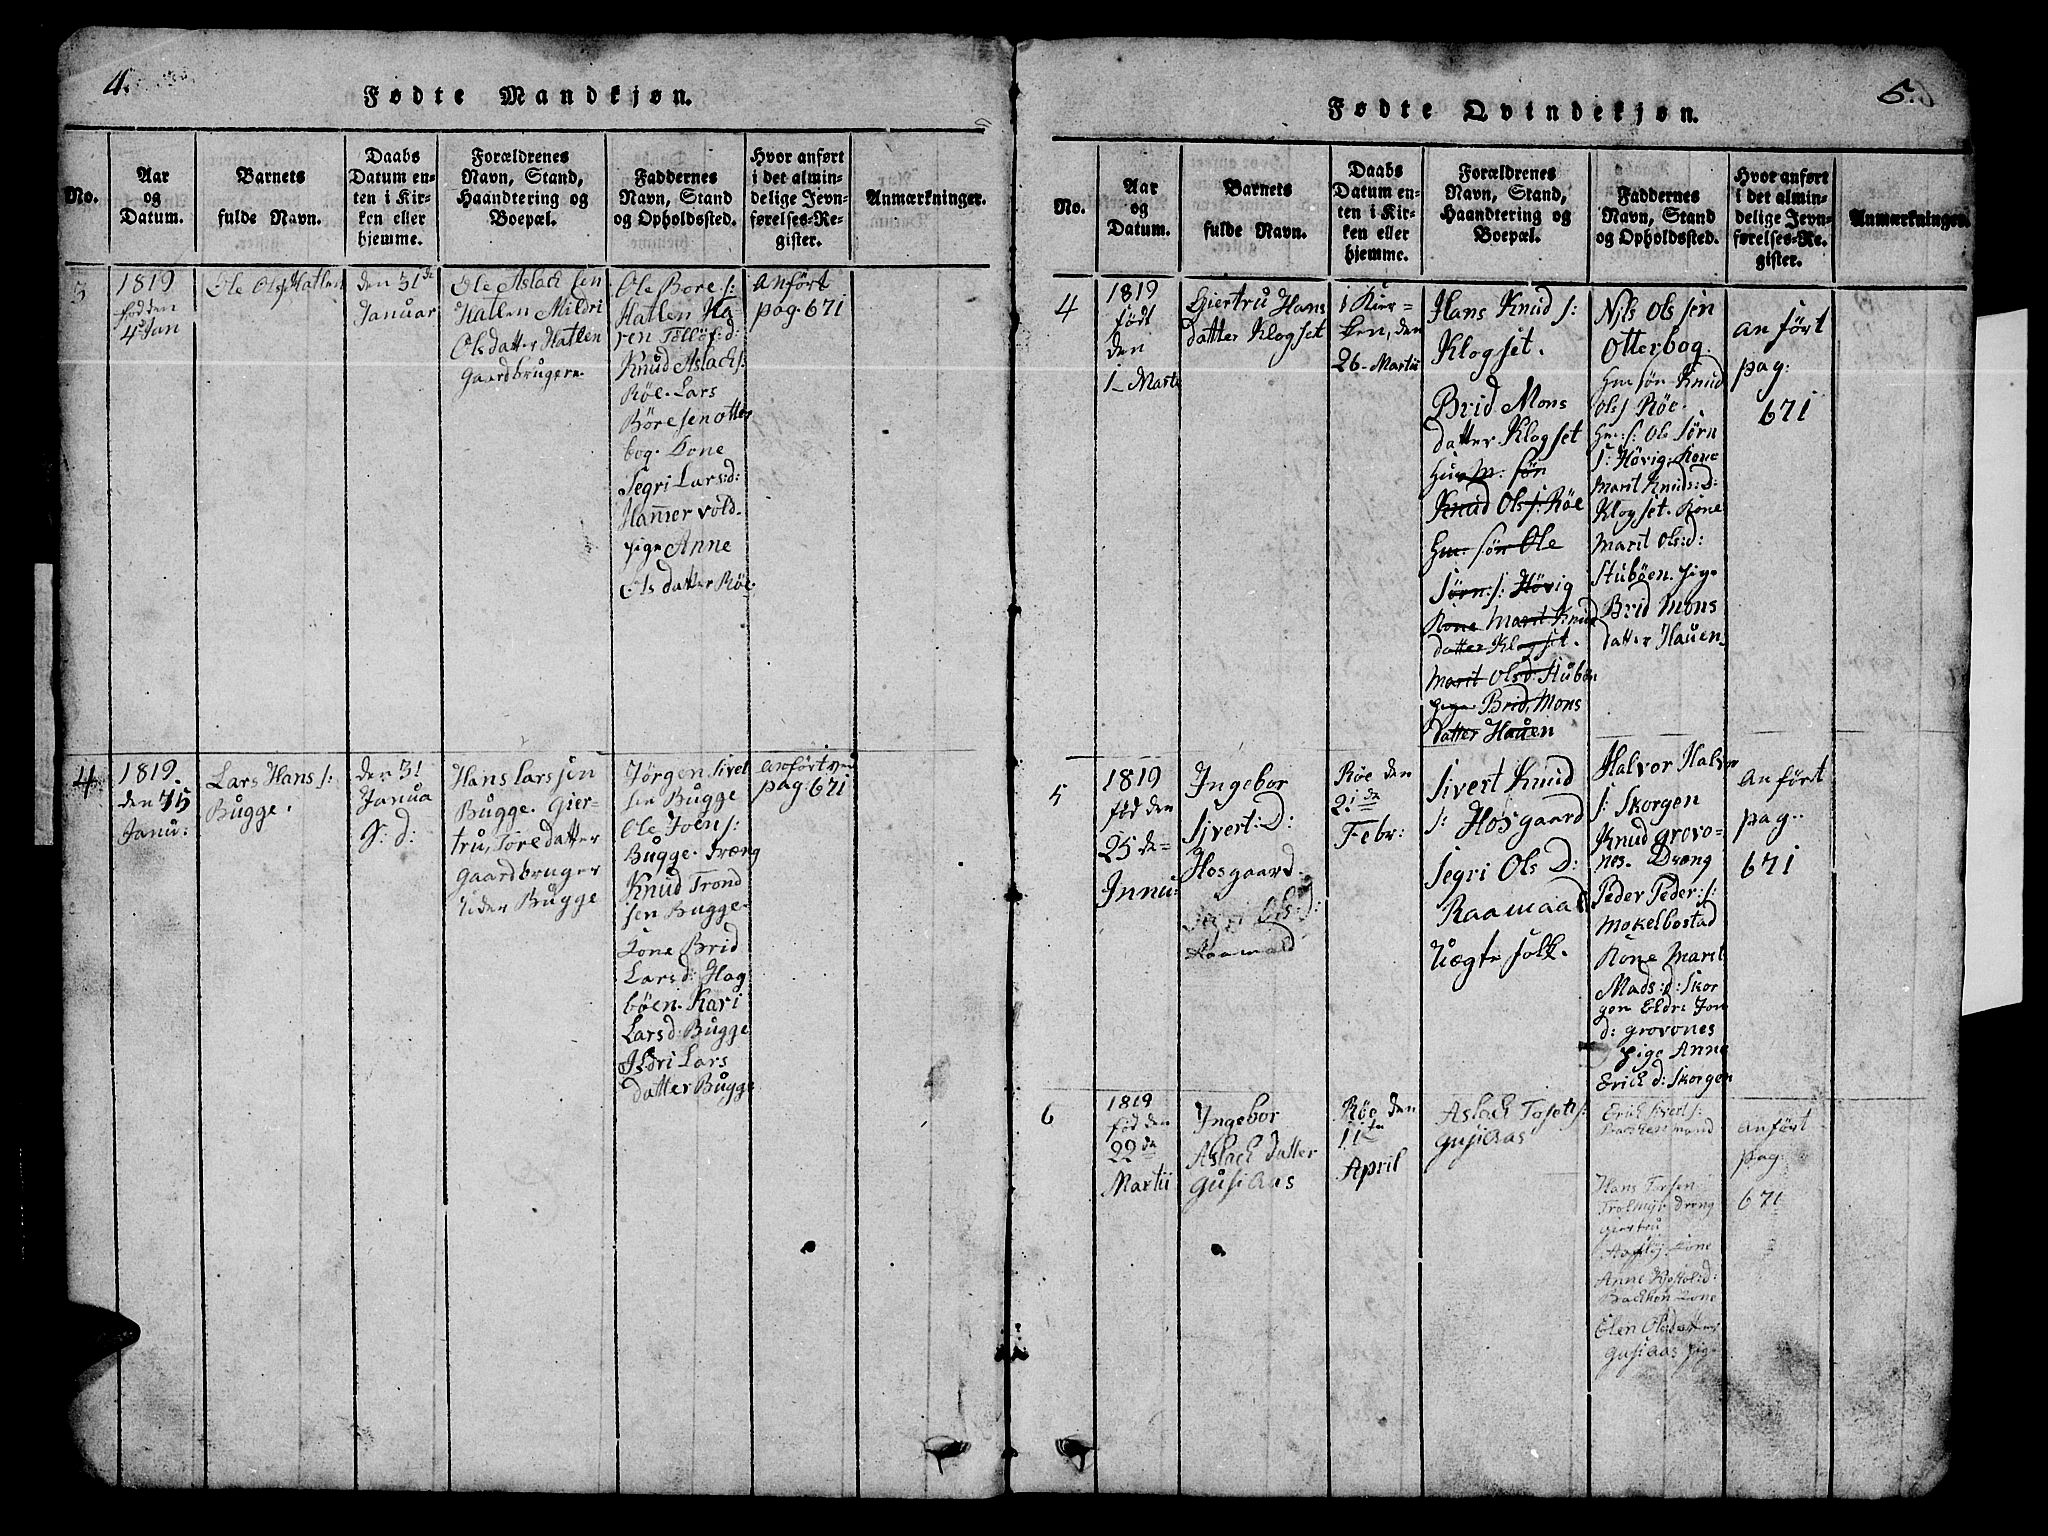 4.
Fødte Mandkjøn.
No.
Aar
og
Datum.
Barnets
fulde Navn.
Daabs
Datum en-
ten i Kir-
ken eller
hjemme.
Forældrenes
Navn, Stand,
Haandtering og
Boepæl.
Faddernes
Navn, Stand
og Opholdssted.
Hvor anført
i det almin-
delige Jevn-
førelses-Re-
gister.
Anmærkninger.
3
1819
fød den
4de Jan
Ole Ols s: Hatlen
den 31de
Januar
Ole Aslach sen
Hatlen Mildri
Olsdatter Hatlen
Gaardbrugere
Ole Bore s:
Hatlen Ka
ren Tollöf: d:
Knud Aslach s:
Röe. Lars
Böre sen otter
bog. Kone
Segri Lars: d:
Hammervold.
pige Anne
Ols datter Röe.
anført
pag. 671
4
1819.
den 15
Janu:
Lars Hans s:
Bugge.
den 31
Janua
S: d:
Hans Lars sen
Bugge. Gier-
tru, Tore datter
gaardbruger
Bugge
Jörgen Sivert
sen Bugge
Ole Joen s:
Bugge. dræng
Knud Trond
sen Bugge.
Kone Brid
Lars d: Hag
böen. Kari
Lars d: Bugge
Ildri Lars
datter Bugge
anført
pag: 671
5.
Fødte Qvindekjøn.
No.
Aar
og
Datum.
Barnets
fulde Navn.
Daabs
Datum en-
ten i Kir-
ken eller
hjemme.
Forældrenes
Navn, Stand,
Haandtering og
Boepæl.
Faddernes
Navn, Stand
og Opholdssted.
Hvor anført
i det almin-
delige Jevn-
førelses-Re-
gister.
Anmærkninger.
4
1819
født
den
1- Marti
Giertru Hans
datter Klogset
i Kier-
ken, den
26- Martii
Hans Knud s:
Klogset.
Brid Mons
datter Klogset
Hus M. sön
Knud Ols s: Röe
Hm. sön Ole
Sörn: s: Hövig
Kone Marit Knud
datter Klogset.
Marit Olsd: Stubön
pige Brid, Mons
datter Hauen
Nils Ols sen
Otterbog.
Hm sön Knud
Ols s Röe.
Hm: s: Ole Sörn
s: Hövig. Kone
Marit Knuds: D:
Klogset. Kone
Marit Ols: d:
Stuböen. pige
Brid Mons
datter Hauen
anført
pag:
671
5
1819
fød den
25 de-
Jnnu:
Ingebor
Sivert: D:
Hosgaard.
Segri Ols: d:
Raamald
Röe den
21de
Febr:
Sivert Knud
s: Hosgaard
Segri Ols D:
Raamaald
Uægte folk.
Halvor Halvor
s: Skorgen
Knud grovo-
nes. Dræng
Peder Peder: s:
Mokelbostad
Kone Marit
Mads: d: Skor
gen Eldri Jon
d: grovones
pige Anne
Erich d: Skorgen
anført
pag..
671
6
1819
fød den
22 de
Martii
Ingebor
Aslach datter
gusiaas
Röe den
11te
April
Aslach Tosten s:
gusiaas
Erich Sivert s:
Hans Torsen
dreng
giertru
Kone
Anne
Kone
Elen Olsdatter
gusiaas pige
anført
pag.
671